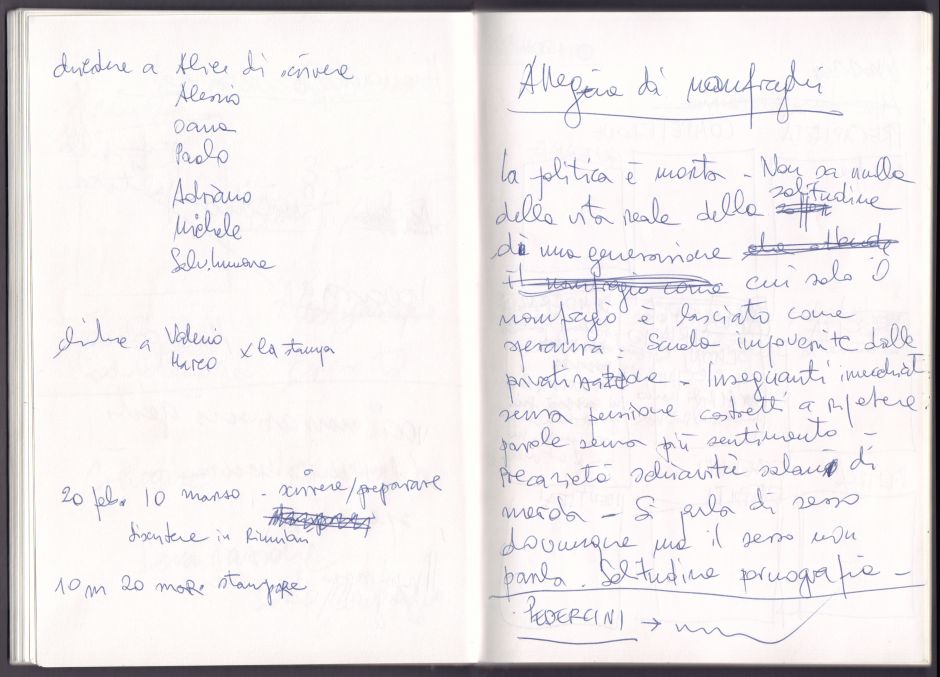 chiedere a Alice di scrivere
Alessio
Oana
Paolo
Adriano
Michele
Selvimmone
chiedere a Valerio
Marco x la stampa
20 feb. 10 marzo - scrivere/preparare
discutere in Riunioni
10 m 20 mar. stampare
Allegria di naufraghi
La politica è morta - Non sa nulla
della vita reale della solitudine
di una generazione
il naufragio come cui solo il
naufragio è lasciato come
speranza. Scuola impoverite dalle
privatizzazione - Insegnanti invecchiati
senza pensione costretti a ripetere
parole senza più sentimento -
Precarietà schiavitù salari di
merda - Si parla di sesso
dovunque ma il sesso non
parla. Solitudine pornografia -
PEDERCINI →